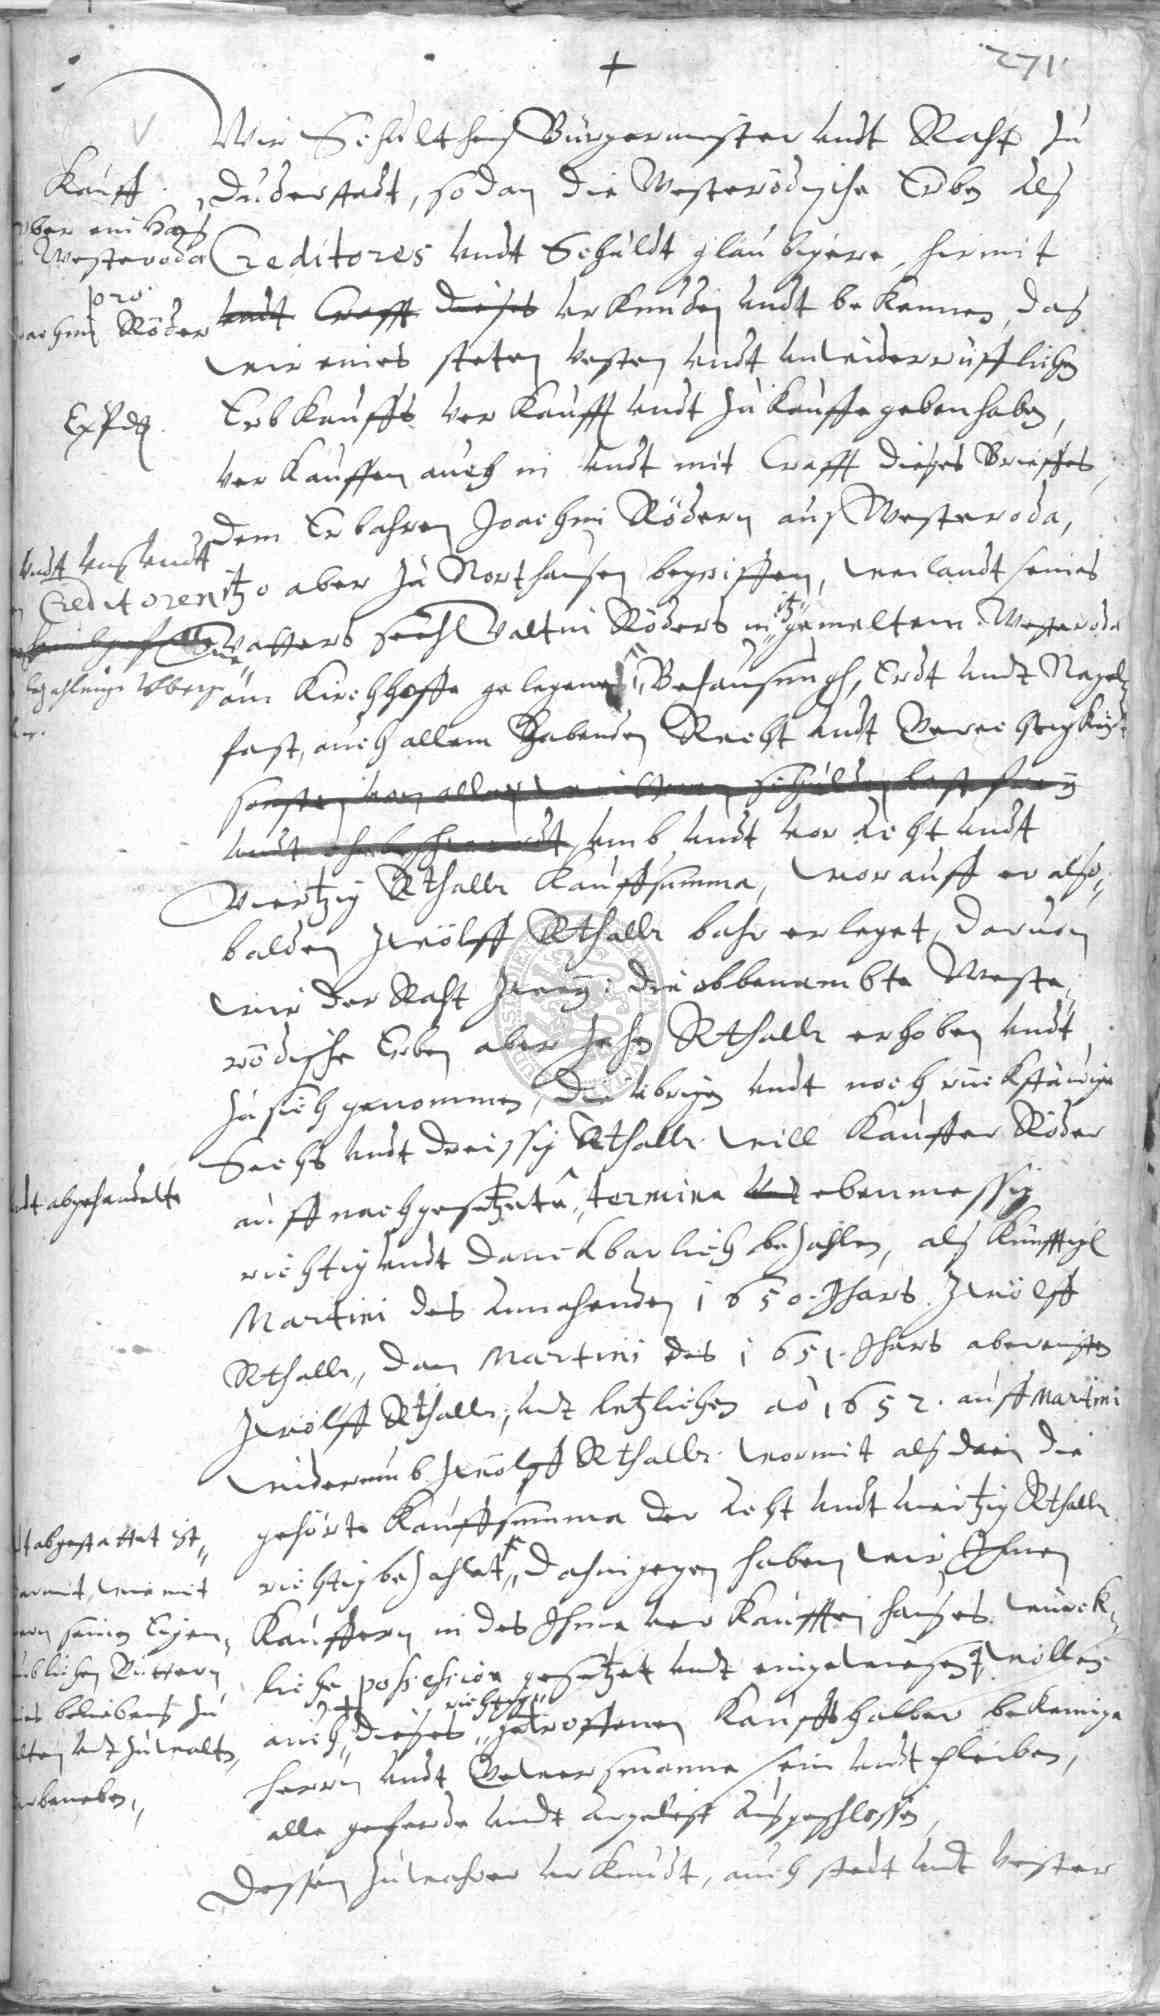 271.
Wir Schultheiß Bürgermeister undt Raht zu
Duderstadt, so dan die Westerödische Erben als
Creditores undt Schuldt gläubigere, hirmit
undt Crafft dieses urkunden undt bekennen, das
wir eines steten vesten undt unwiderrufflichen
Erbkauffs verkaufft undt zu kauffe geben haben,
verkauffen auch in undt mit Crafft dieses Brieffes,
dem Erbahren Joachim Rödern aus Westeroda,
itzo aber zu Northausen begriffen, weilandt seines
Vatters seehl Valtin Röders in itz gemeltem Westeroda
am Kirchhoffe gelegene Behausungh, Erdt undt Nagel
fast, auch allem habenden Recht undt Gerechtigkeidt
sonsten von allen schulden last frey
undt umb undt vor acht undt
Viertzig Rthallr Kauffsumma, worauff er also
balden zwölff Rthallr bahr erleget, davon
wir der Raht zwey: die obbenambte Weste
rödische Erben aber zehn Rthallr erhoben undt
zu sich genommen, die ubrigen undt noch rückständige
Sechs undt dreissig Rthallr. will Kauffer Röder
auff nachgesetzete termine ebenmessig
richtig undt danckbarlich bezahlen, als künfftigh
Martini des annahenden 1650. Jhars zwölff
Rthallr, dan Martini des 1651. Jhars abereinsten
zwölff Rthallr, undt letzlichen ao 1652. auff Martini
widerumb zwölff Rthallr. wormit als dan die
gehörte Kauffsumma der acht undt viertzig Rthallr
richtig bezahlet, dahingegen haben wir Ihmen
Kauffern in des Ihme verkaufften hauses würck
liche possession gesetzet undt eingewiesen, wollen
auch dieses richtig getroffenen Kauffs halber bekennige
herrn undt Gewersmanne sein undt pleiben,
alle geferde undt argelist ausgeschlossen,
Dessen zu wahrer urkundt, auch stedt undt vester
Kauff
uber ein Haus
Westeroda
pro
Joachim Röder
Expdg.
undt uns undt
Creditoren
bezahlung uber
undt abgehandelte
abgestattet ist
darmit, wie mit
seinen Eigen
thümblichen Güttern
seines beliebens zu
undt zu walten
darbeneben